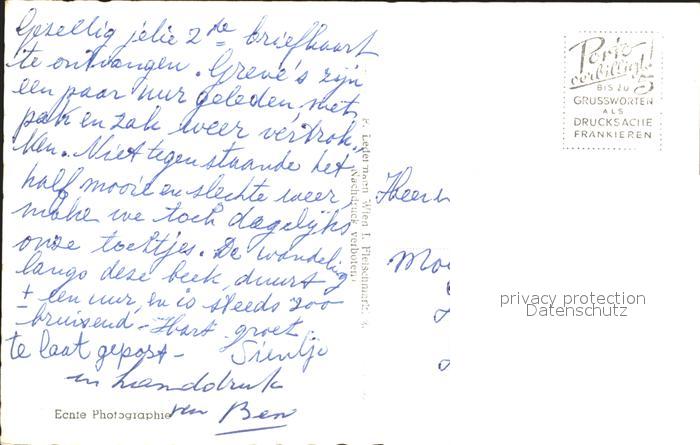 Gezellig jelie 2de briefkaart
te ontvangen. Greve's zijn
een paar uur geleden, met
pak en zak weer vertrok-
ken. Niet tegenstaande het
half mooie en slechte weer,
make we toch dagelijks
onze tochtjes. De wandeling
langs deze beek, duurt
± een uur, en is steeds zoo
bruisend - Hart. groet
te laat gepost - Sientje
en handdruk
van Ben
Echte Photographie
P. Ledermann, Wien I, Fleischmarkt
(Nachdruck verboten)
Porto
verbilligt!
5
BIS ZU
GRUSSWORTEN
ALS
DRUCKSACHE
FRANKIEREN
Heer
privacy protection
Datenschutz